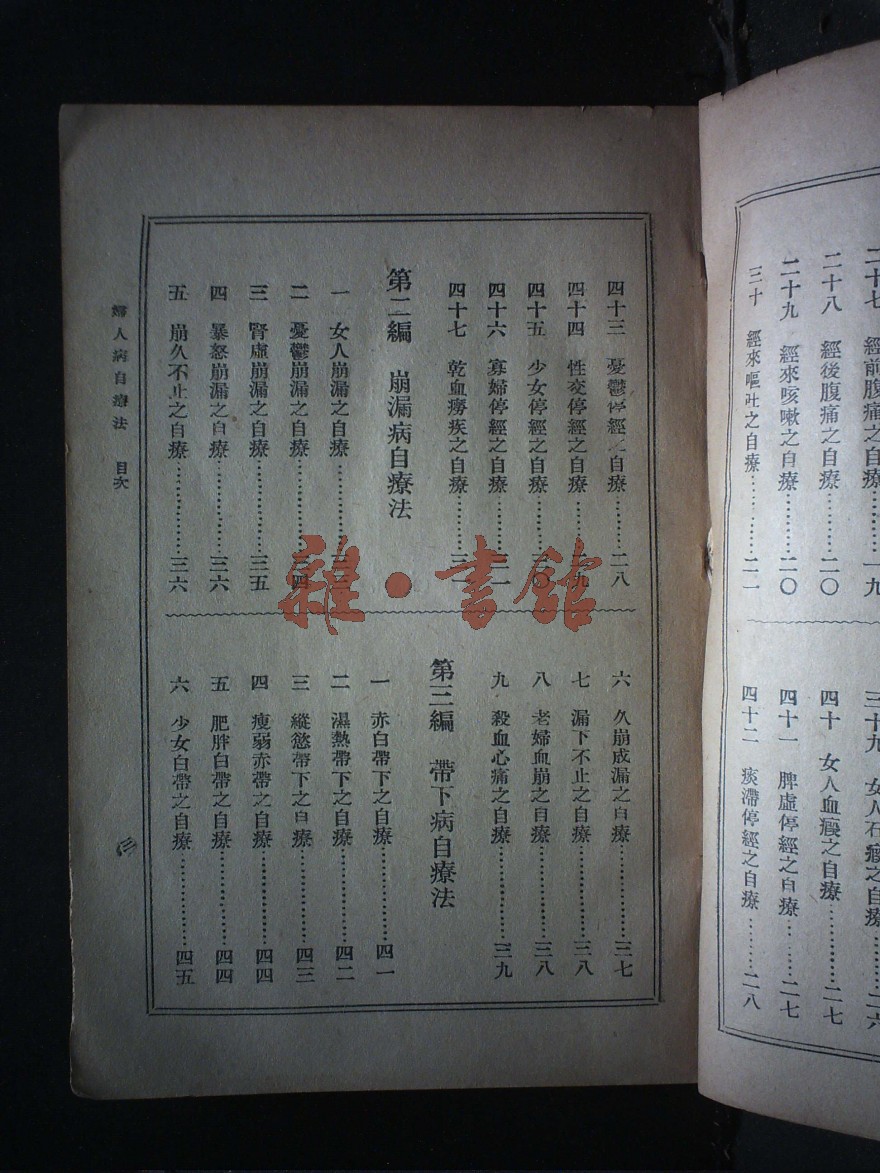 二十七 經前腹痛之自療………一九
二十八 經後腹痛之自療………二〇
二十九 經來咳嗽之自療………二〇
三十 經來嘔吐之自療…………二一
三十九 女人石瘕之自療………二六
四十 女人血瘕之自療…………二七
四十一 脾虛停經之自療………二七
四十二 痰滯停經之自療………二八
四十三 憂鬱停經之自療………二八
四十四 性交停經之自療………九
四十五 少女停經之自療………〇
四十六 寡婦停經之自療………一
四十七 乾血癆疾之自療………三
第二編 崩漏病自療法
一 女人崩漏之自療……………三
二 憂鬱崩漏之自療……………三四
三 腎虛崩漏之自療……………三五
四 暴怒崩漏之自療……………三六
五 崩久不止之自療……………三六
六 久崩成漏之自療……………三七
七 漏下不止之自療……………三八
八 老婦血崩之自療……………三八
九 殺血心痛之自療……………三九
第三編 帶下病自療法
一 赤白帶下之自療……………四一
二 濕熱帶下之自療……………四二
三 縱慾帶下之自療……………四三
四 瘦弱赤帶之自療……………四四
五 肥胖白帶之自療……………四四
六 少女白帶之自療……………四五
婦人病自療法 目次
三
雜·書館